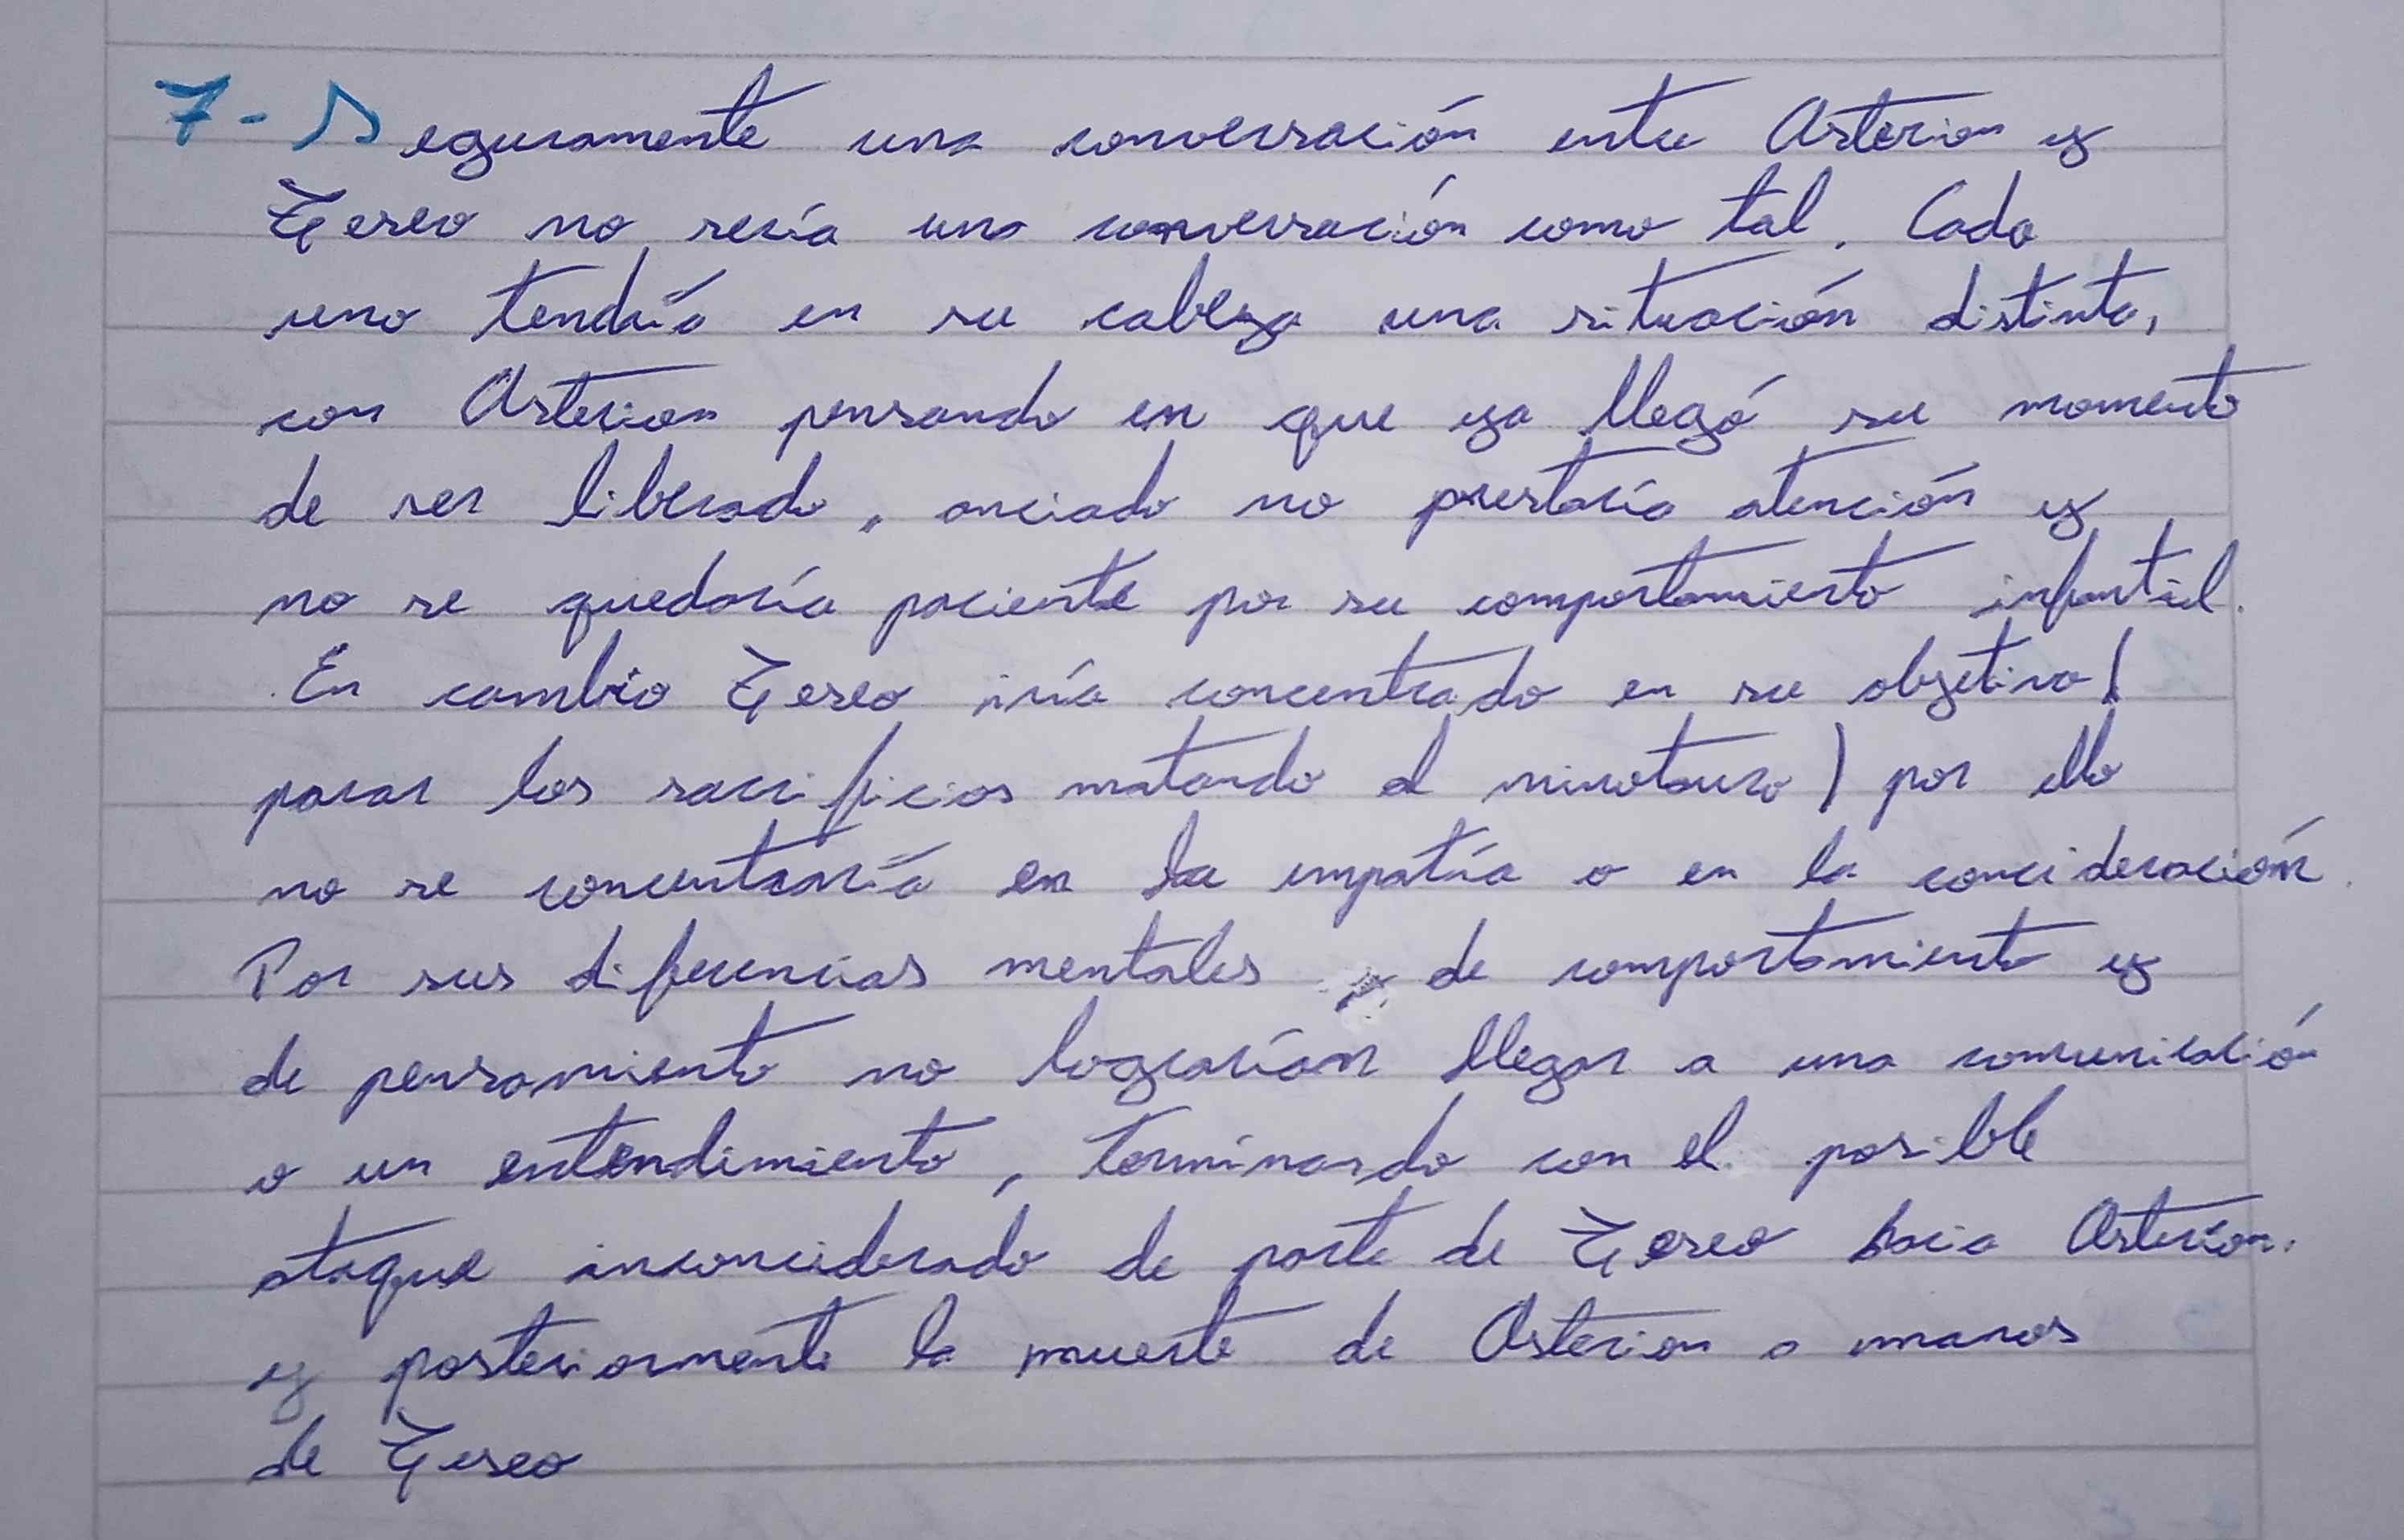 7- Seguramente una conversación entre Asterion y
Teseo no sería una conversación como tal. Cada
uno tendría en su cabeza una situación distinta,
con Asterion pensando en que ya llegó su momento
de ser liberado, anciado no prestaría atención y
no se quedaría paciente por su comportamiento infantil.
En cambio Teseo iría concentrado en su objetivo (
parar los sacrificios matando al minotauro) por ello
no se concentraría en la empatía o en la concideración.
Por sus diferencias mentales, de comportamiento y
de pensamiento no lograrían llegar a una comunicación
o un entendimiento, terminando con el posible
ataque inconciderado de parte de Teseo hacia Asterion.
y posteriormente la muerte de Asterion a manos
de Teseo